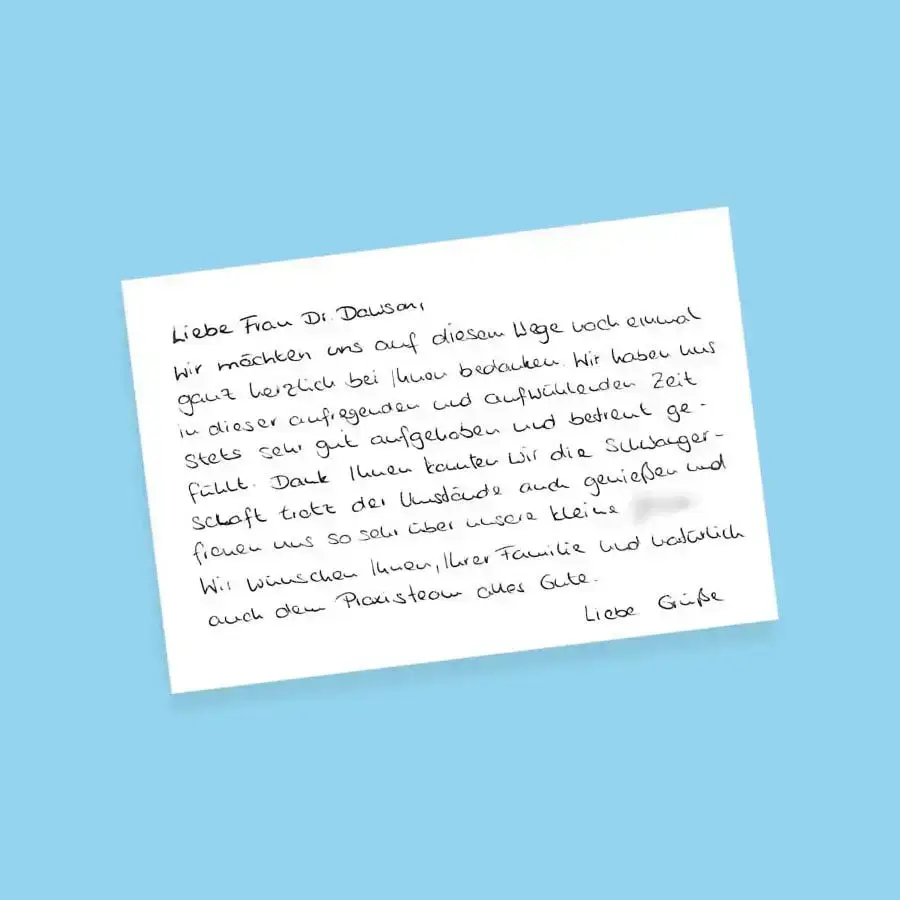 Liebe Frau Dr. Dawson,
wir möchten uns auf diesem Wege noch einmal
ganz herzlich bei Ihnen bedanken. Wir haben uns
in dieser aufregenden und aufwühlenden Zeit
stets sehr gut aufgehoben und betreut ge-
fühlt. Dank Ihnen konnten wir die Schwanger-
schaft trotz der Umstände auch genießen und
freuen uns so sehr über unsere kleine
Wir wünschen Ihnen, Ihrer Familie und natürlich
auch dem Praxisteam alles Gute.
Liebe Grüße